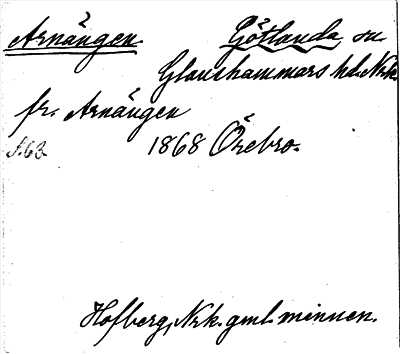 Arnängen. Götlanda sn
Glanshammars hd. Nrk.
fr. Arnängen
s. 63. 1868 Örebro.
Hofberg, Nrk. gml. minnen.